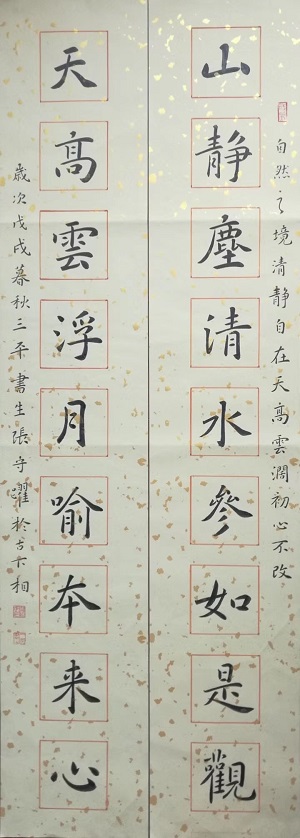 自然之境清静自在天高雲濶初心不改
山靜塵清水參如是觀
天高雲浮月喻本来心
歲次戊戌暮秋三平書生張守躍於古卞相